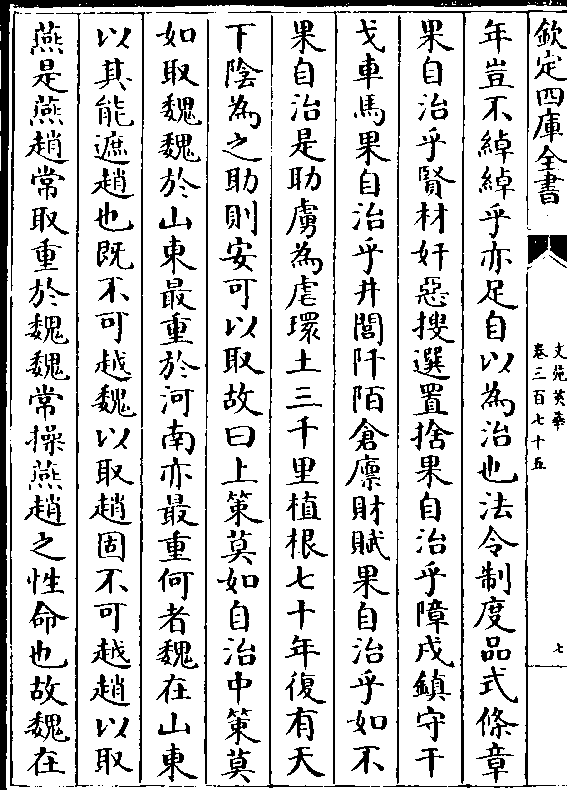 欽定四庫全書
文苑英華
卷三百七十五
七
年豈不綽綽乎亦足自以為治也法令制度品式條章
果自治乎賢材奸惡搜選置捨果自治乎障戍鎮守干
戈車馬果自治乎井閭阡陌倉廪財賦果自治乎如不
果自治是助虜為虐環土三千里植根七十年復有天
下陰為之助則安可以取故曰上策莫如自治中策莫
如取魏魏於山東最重於河南亦最重何者魏在山東
以其能遮趙也既不可越魏以取趙固不可越趙以取
燕是燕趙常取重於魏魏常操燕趙之性命也故魏在